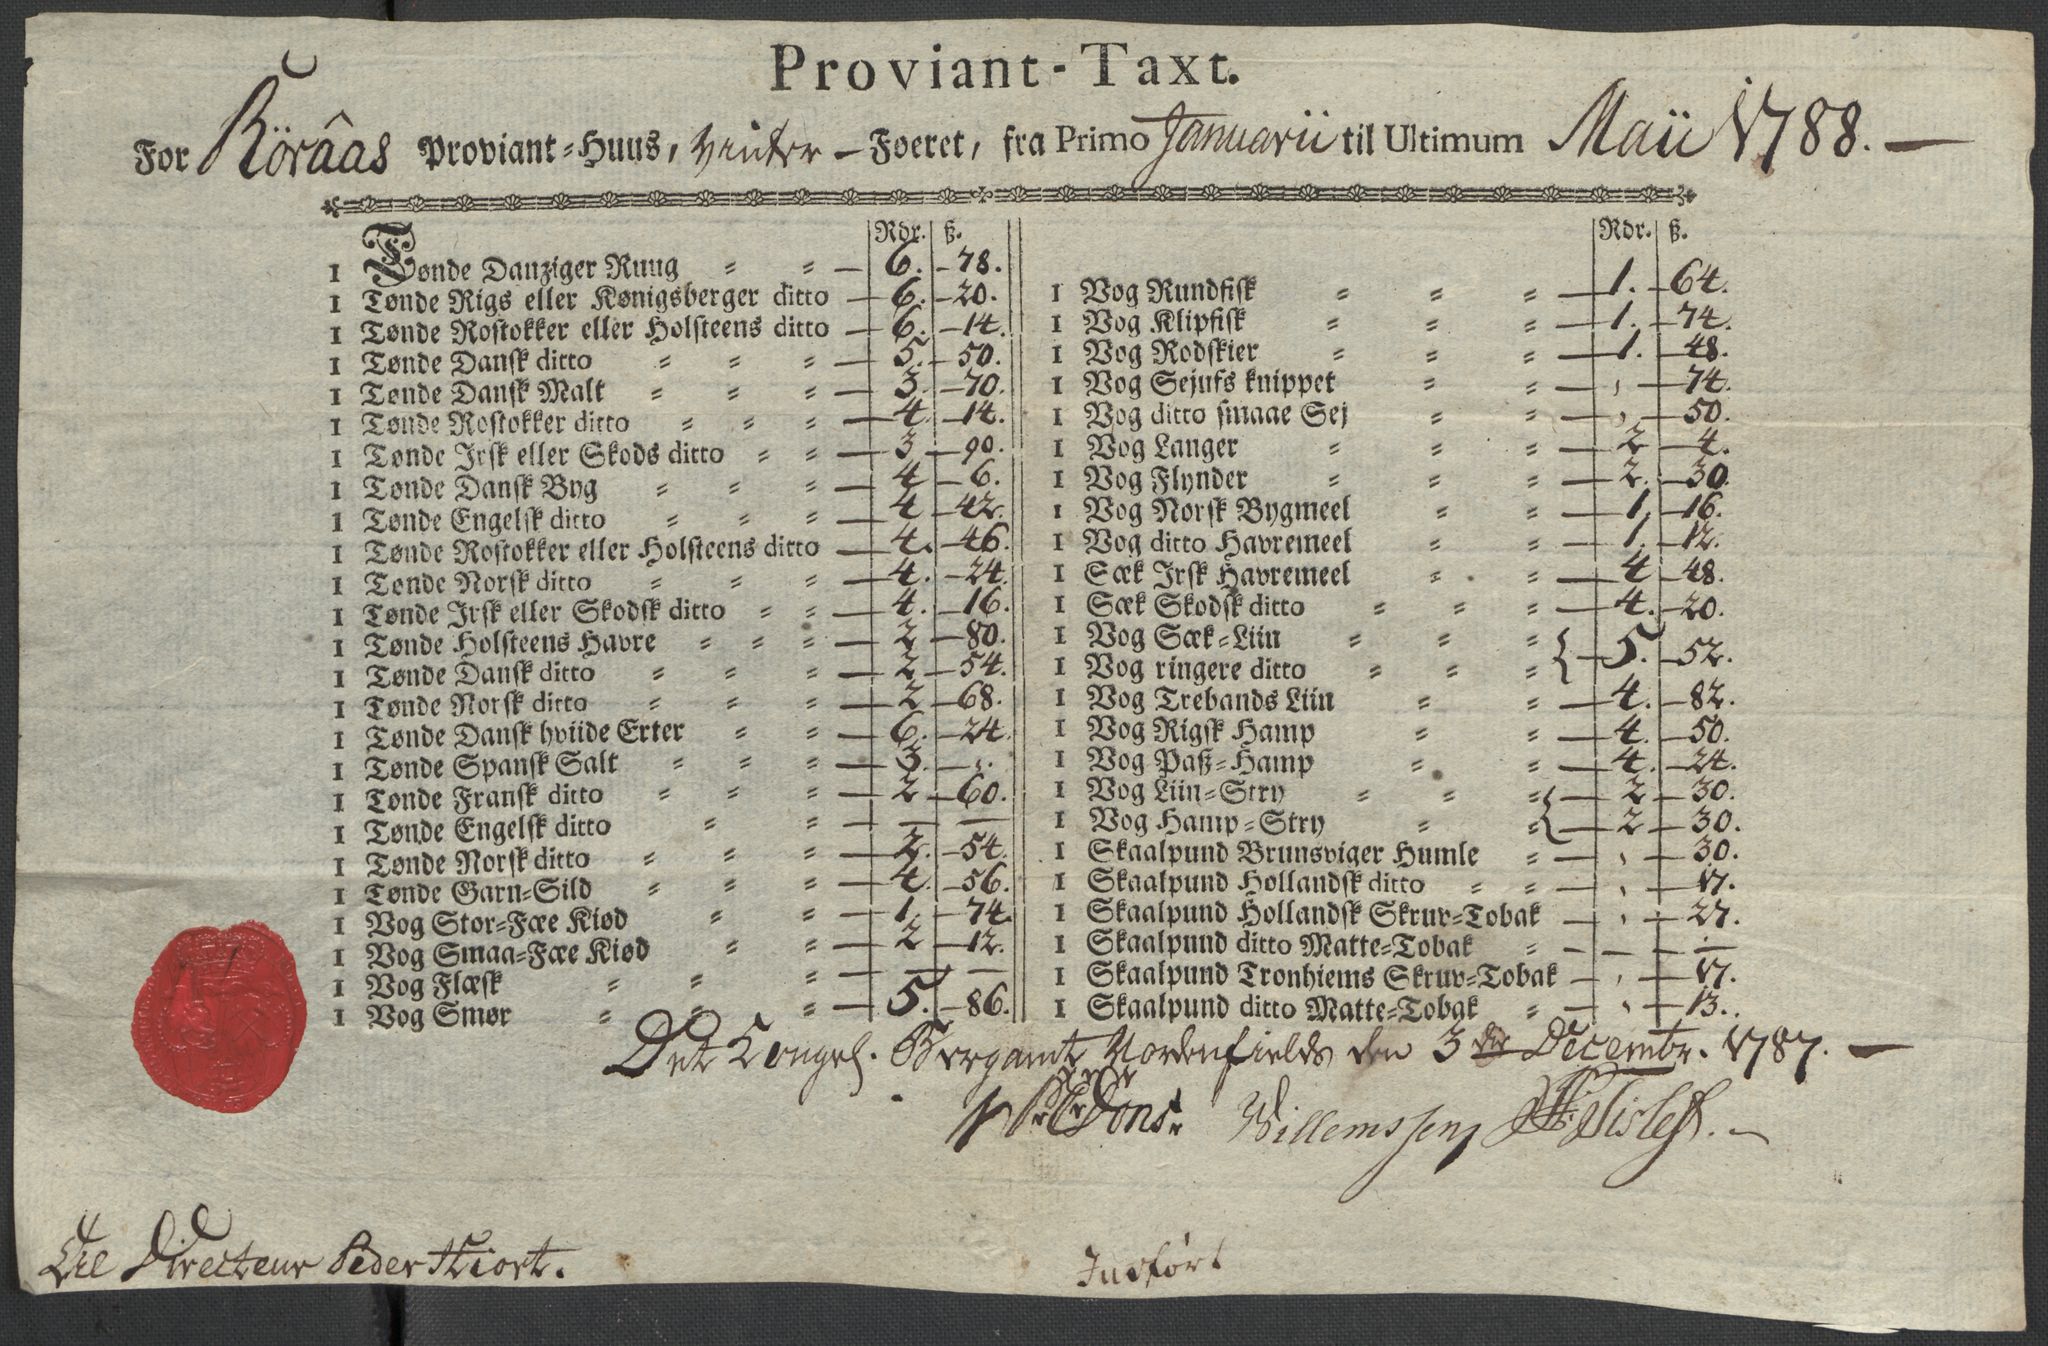 Proviant-Taxt.
For Röraas Proviant-Huus, Vinter-Foeret, fra Primo Januarii til Ultimum Maii 1788.
Rdr. ß.
1 Tønde Danziger Ruug 6. 78.
1 Tønde Rigs eller Kønigsberger ditto 6. 20.
1 Tønde Rostokker eller Holsteens ditto 6. 14.
1 Tønde Dansk ditto 5. 50.
1 Tønde Dansk Malt 3. 70.
1 Tønde Rostokker ditto 4 14.
1 Tønde Irsk eller Skods ditto 3 90.
1 Tønde Dansk Byg 4 6.
1 Tønde Engelsk ditto 4 42.
1 Tønde Rostokker eller Holsteens ditto 4. 46.
1 Tønde Norsk ditto 4. 24.
1 Tønde Irsk eller Skodsk ditto 4. 16.
1 Tønde Holsteens Havre 2 80.
1 Tønde Dansk ditto 2 54.
1 Tønde Norsk ditto 2 68.
1 Tønde Dansk hviide Erter 6. 24.
1 Tønde Spansk Salt 3. -
1 Tønde Fransk ditto 2 60.
1 Tønde Engelsk ditto — —
1 Tønde Norsk ditto 2. 54.
1 Tønde Garn-Sild 4. 56.
1 Vog Stor-Fæe Kiød 1. 74.
1 Vog Smaa-Fæe Kiød 2 12.
1 Vog Flæsk — —
1 Vog Smør 5. 86.
Rdr. ß.
1 Vog Rundfisk 1. 64.
1 Vog Klipfisk 1. 74.
1 Vog Rodskier 1. 48.
1 Vog Sejufs knippet , 74.
1 Vog ditto smaae Sej , 50.
1 Vog Langer 2 4.
1 Vog Flynder 2. 30.
1 Vog Norsk Bygmeel 1. 16.
1 Vog ditto Havremeel 1. 12.
1 Sæk Irsk Havremeel 4 48.
1 Sæk Skodsk ditto 4. 20.
1 Vog Sæk-Liin
1 Vog ringere ditto { 5. 52.
1 Vog Trebands Liin 4. 82.
1 Vog Rigsk Hamp 4. 50.
1 Vog Paß-Hamp 4. 24.
1 Vog Liin-Stry { 2 30.
1 Vog Hamp-Stry 2 30.
1 Skaalpund Brunsviger Humle , 30.
1 Skaalpund Hollandsk ditto , 17.
1 Skaalpund Hollandsk Skruv-Tobak , 27.
1 Skaalpund ditto Matte-Tobak — —
1 Skaalpund Tronhiems Skruv-Tobak , 17.
1 Skaalpund ditto Matte-Tobak , 13.
Det Kongel. Bergamt Nordenfields den 3die Decembr. 1787.
Willemssen
Til Directeur Peder Hiort.
Indført